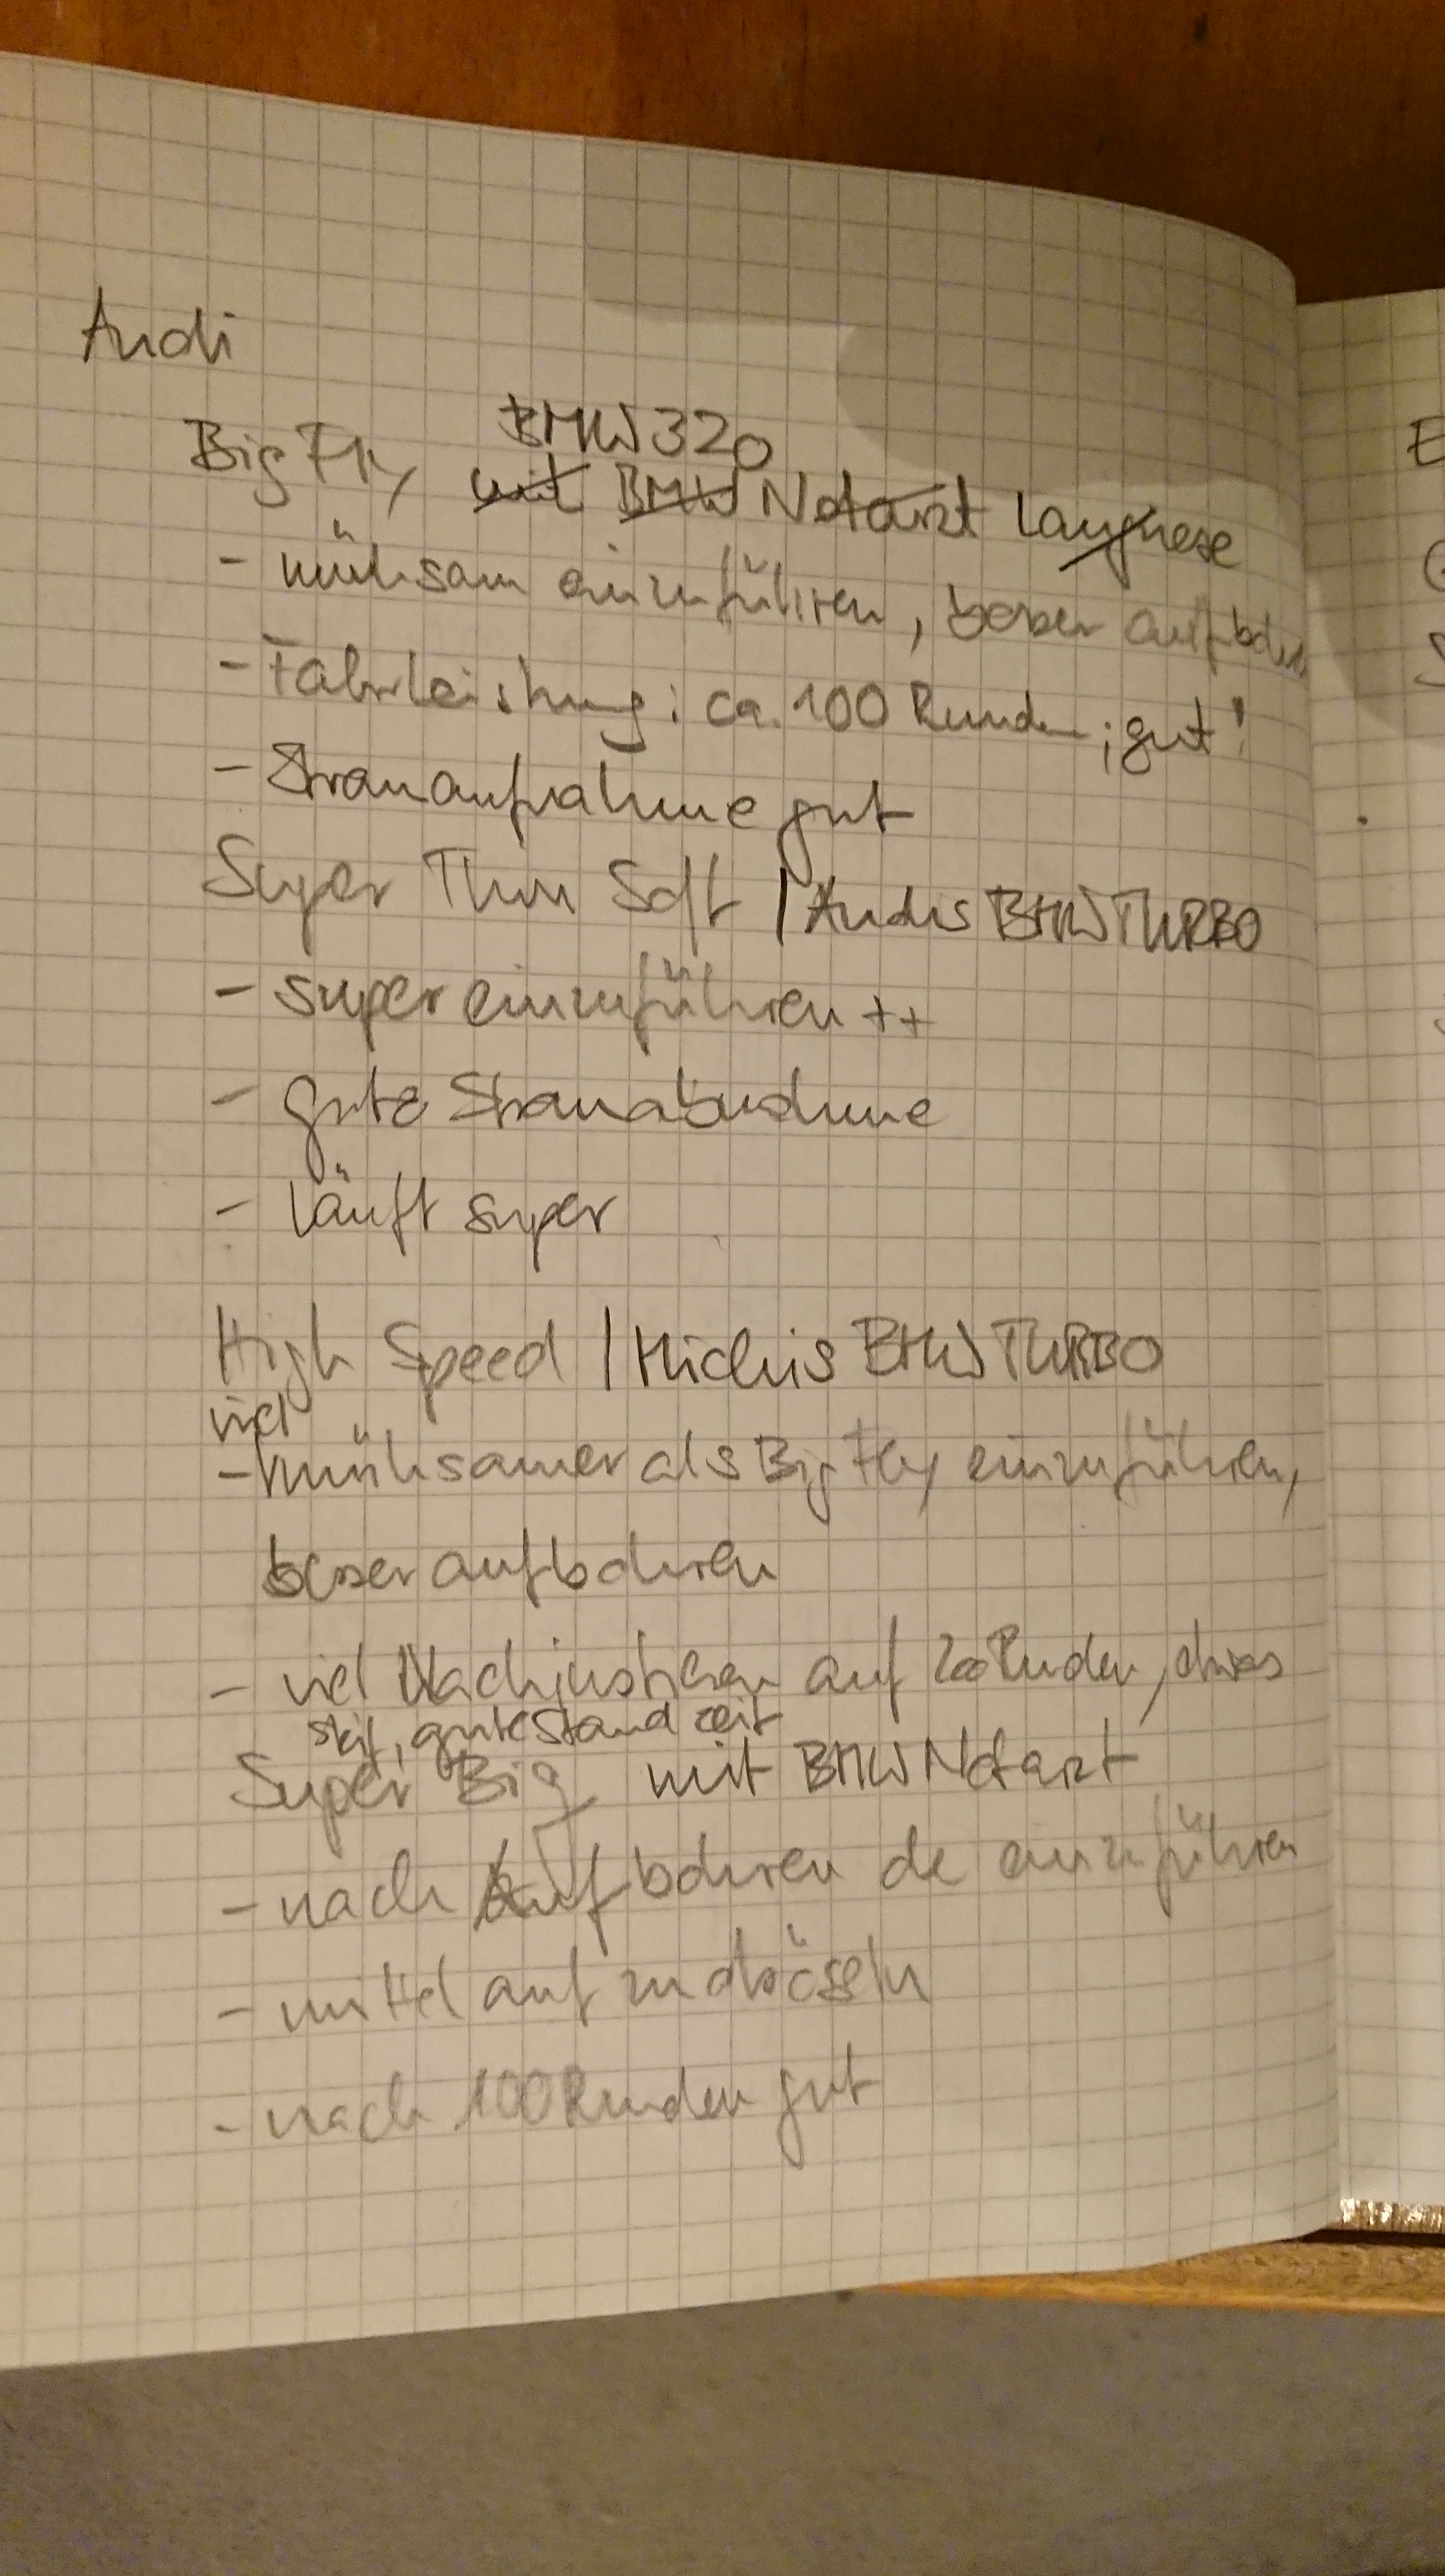 Andi
BMW 320
Big Fly mit BMW Notarzt Langnese
- mühsam einzuführen, besser aufbohren
- Fahrleistung: ca. 100 Runden; gut!
- Stromaufnahme gut
Super Thin Soft | Andis BMW TURBO
- super einzuführen ++
- gute Stromabnahme
- läuft super
High Speed | Michis BMW TURBO
viel
- mühsamer als Big Fly einzuführen,
besser aufbohren
- viel Nachjustieren auf Runden, etwas
steif, gute Standzeit
Super Big mit BMW Notarzt
- nach Aufbohren einzuführen
- mittel aufzudröseln
- nach 100 Runden gut
E